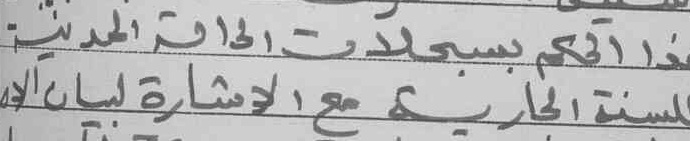 هذا الحكم بسجلات الحالة المدنية
للسنة الجارية مع الإشارة لبيان